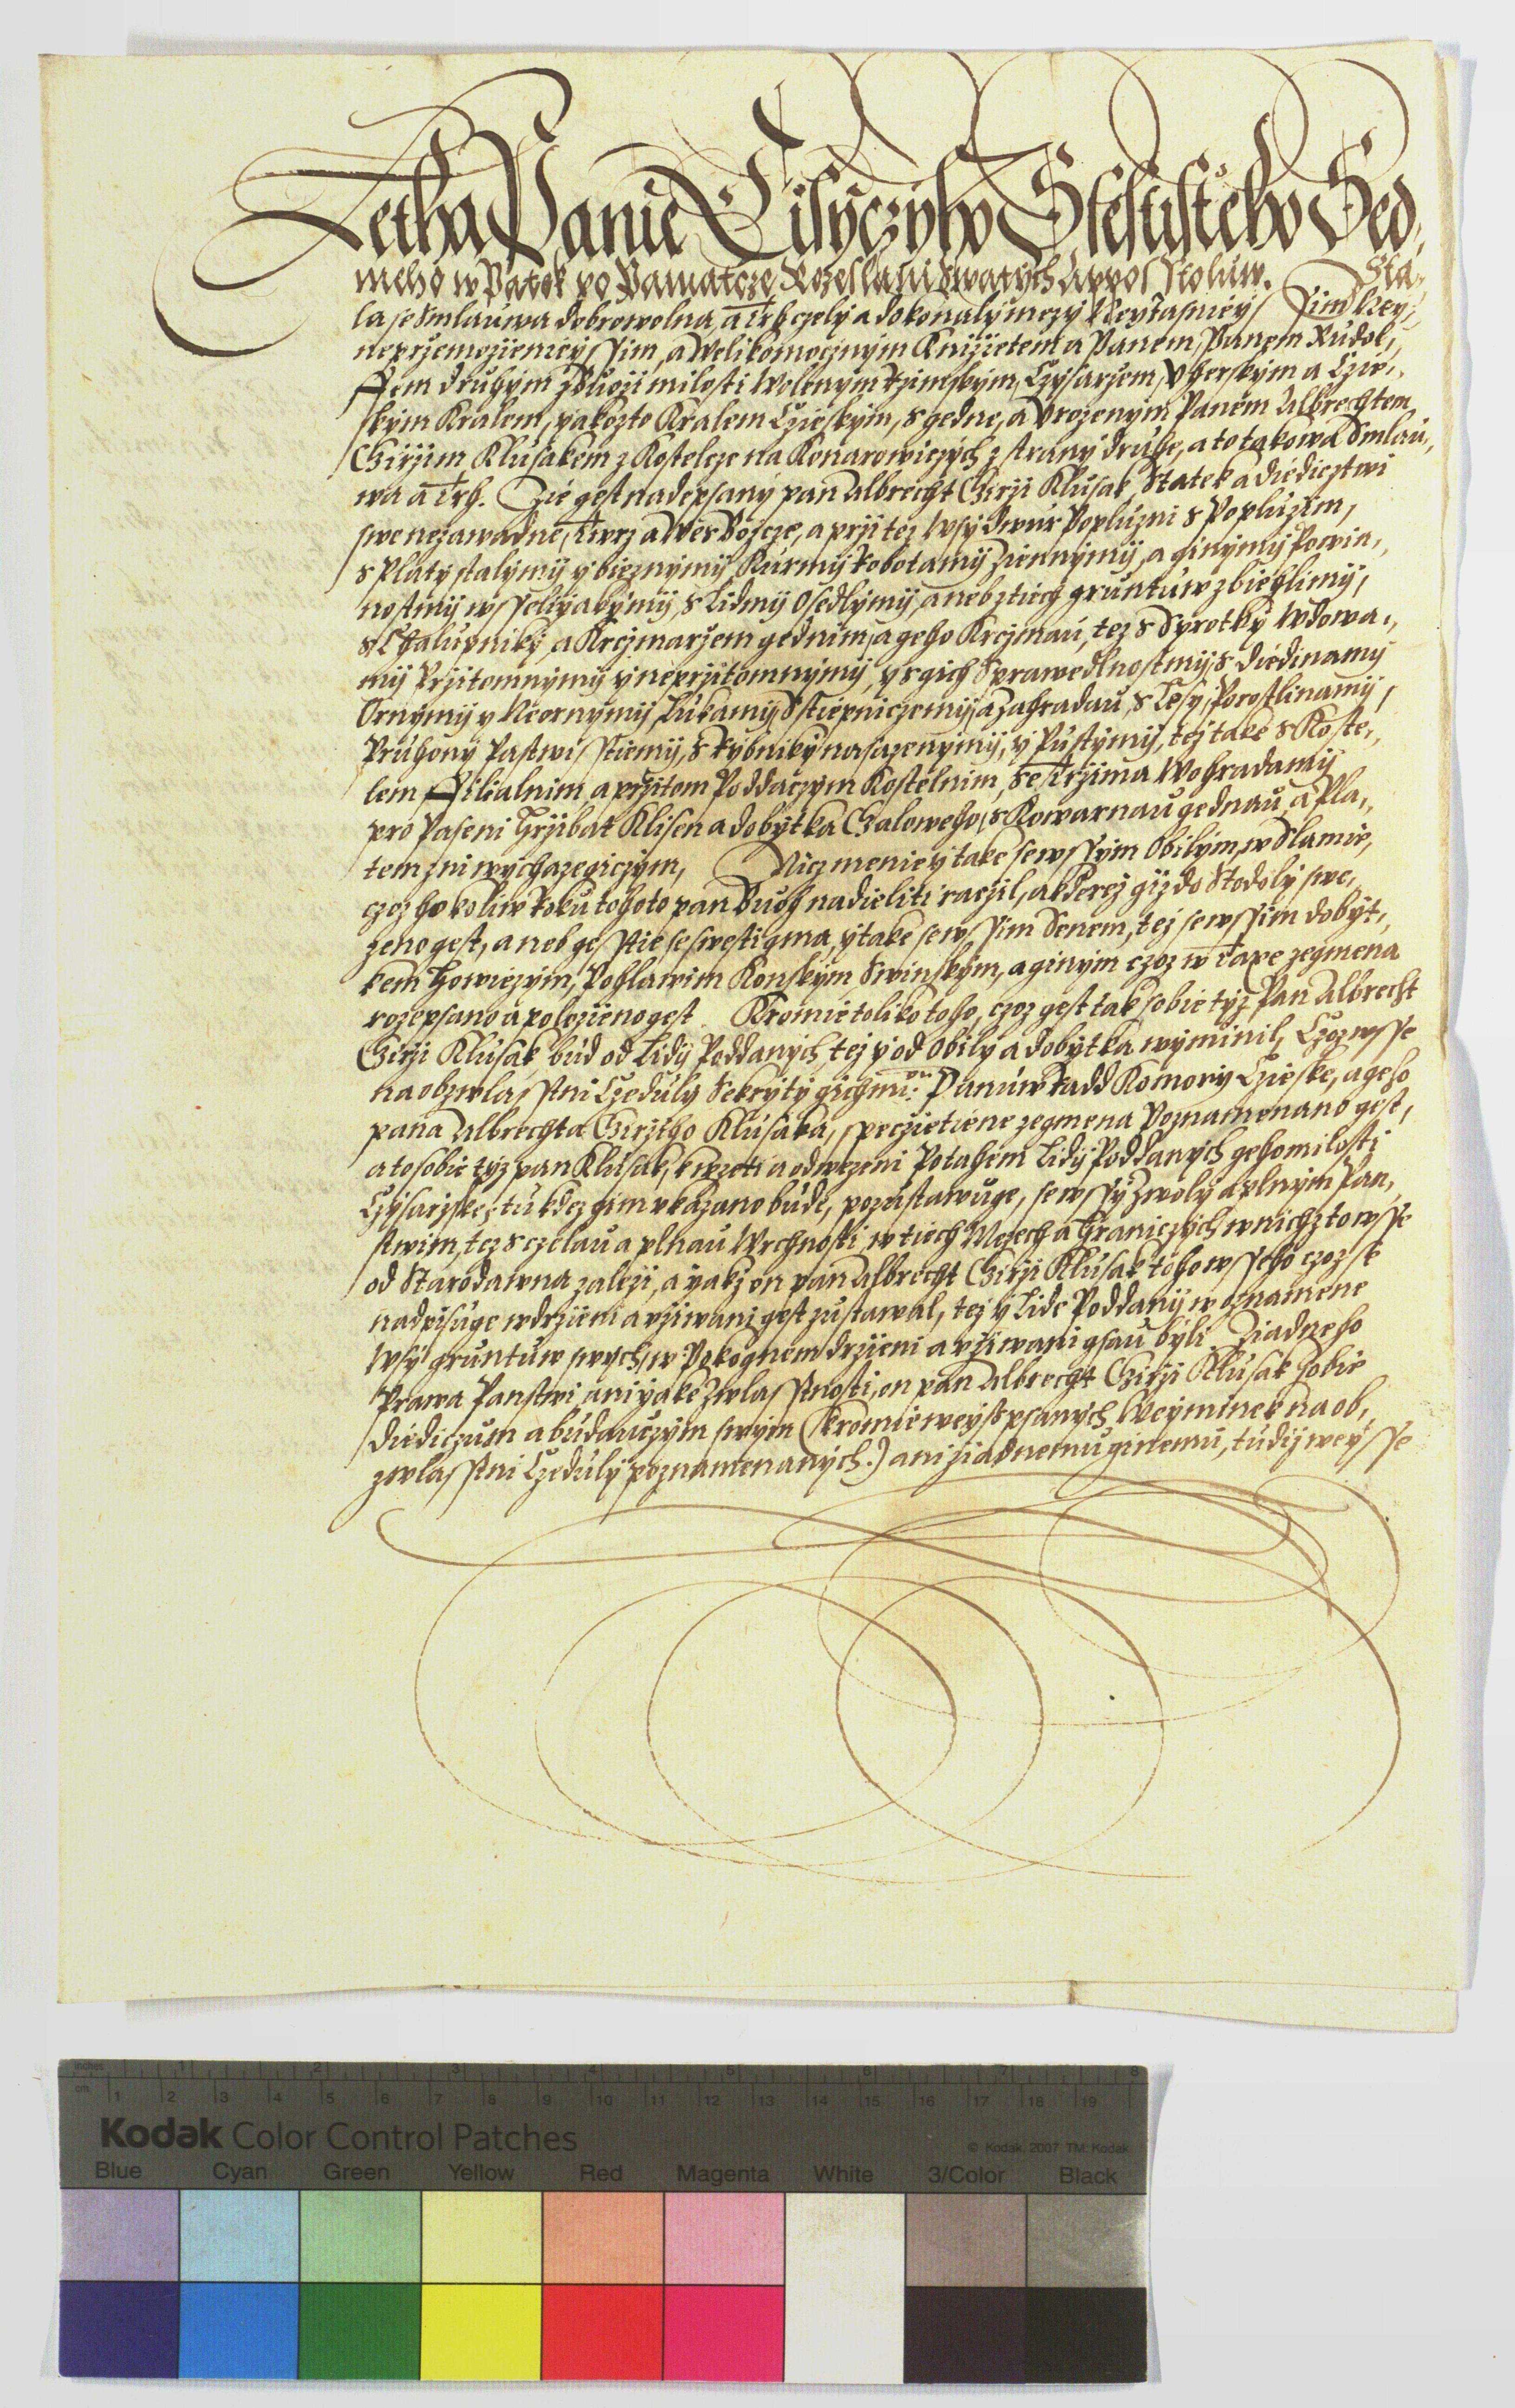 Letha Panie Tisyczyho Ssestisteho Sed,
meho w Patek po Pamatcze Rozeslani swatych Appos Stoluw. Sta,
la se Smlauwa dobrowolna, a Trh czely a dokonaly mezy Neyiasnieys Sim Ney,
neprzemozieneys sim, a Welikomocznym Knizietem a Panem, Panem Rudol,
ffem druhym z Buozi milosti Wolenym Rzimskym, Czysarzem, Uherskym a Czie,
skym Kralem, yakozto Kralem Czieskym, s gedne, a Urozenym Panem Albrechtem
Girzim Klusakem z Kostelcze na Konarowiczych z strany druhe, a to takowa Smlau,
wa a Trh. Zie gest nadepsany pan Albrecht Girzi Klusak Statek a diedicztwi
swe nezawadne, Twrz a Wes Bozcze, a przi tez Wsy Dwur Popluzni s Popluzim,
s Platy stalymij y bieznymij Kurmij Robotamij Ziennymij, a ginymij Powin,
nostmij wsselijakymij, s Lidmij Osedlymij, aneb z tiech gruntuw zbiehlimij,
s Chalupniky, a Krczmarzem gednim, a geho Krczmau, tez s Syrotky Wdowa,
mij Przitomnymij y neprzitomnymij, y s gich Sprawedlnostmij, s Diedinamij
Ornymij y Neornymij, Lukamij, Sstiepniczemij, a Zahradau, s Lesy, Porostlinamij,
Pruhony Pastwisstiemij, s Rybniky nasazenymij, y Pustymij, tez take s Koste,
lem Filialnim, a przitom Poddaczym Kostelnim, se Trzima Wohradamij
pro Paseni Hrzibat Klisen a dobytka Galoweho, s Kowarnau gednau, a Pla,
tem z ni wychazegiczym, Nicz menie y take se wssim Obilym, w Slamie,
czoz ho koliw Roku tohoto pan Buoh nadieliti raczil, a kterez giz do Stodoly swe,
zeno gest, aneb gesstie se swesti gma, y take se wssim Senem, tez se wssim dobyt,
kem Howiezym, Pohlawim Konskym Swinskym, a ginym czoz w Taxe zegmena
rozepsano a polozieno gest. Kromie toliko toho, czoz gest tak sobie tyz Pan Albrecht
Girzi Klusak, bud od Lidij Poddanych, tez y od Obily a dobytka wyminil, Czoz wsse
na obzwlasstni Czeduly Sekryty gich mi: Panuw Radd Komory Czieske, a geho
pana Albrechta Girziho Klusaka, speczietiene zegmena Poznamenano gest,
a to sobie tyz pan Klusak, k wzeti a odwezeni Potahem Lidij Poddanych geho milosti
Czysarzske, tu kdez gim ukazano bude, pozustawuge, se wssy Zwoly a plnym Pan,
stwim, tez s czelau a plnau Wrchnosti, w tiech Mezech a Hraniczych w nichz to wsse
od Starodawna zalezi, a yakz on pan Albrecht Girzi Klusak toho wsseho czoz se
nadpisuge w drzieni a uziwani gest zustawal, tez y Lide Poddanij w oznamene
Wsy gruntuw swych, w Pokognem drzieni a uziwani gsau byli. Ziadneho
Prawa Panstwi, ani yake Zwlasstnosti, on pan Albrecht Girzi Klusak sobie
Diediczum a budauczym swym (kromie weyss psanych Weyminek na ob,
zwlasstni Czeduly poznamenanych.) ani ziadnemu ginemu, tudij weysse
Kodak Color Control Patches
© Kodak, 2007 TM: Kodak
Blue Cyan Green Yellow Red Magenta White 3/Color Black